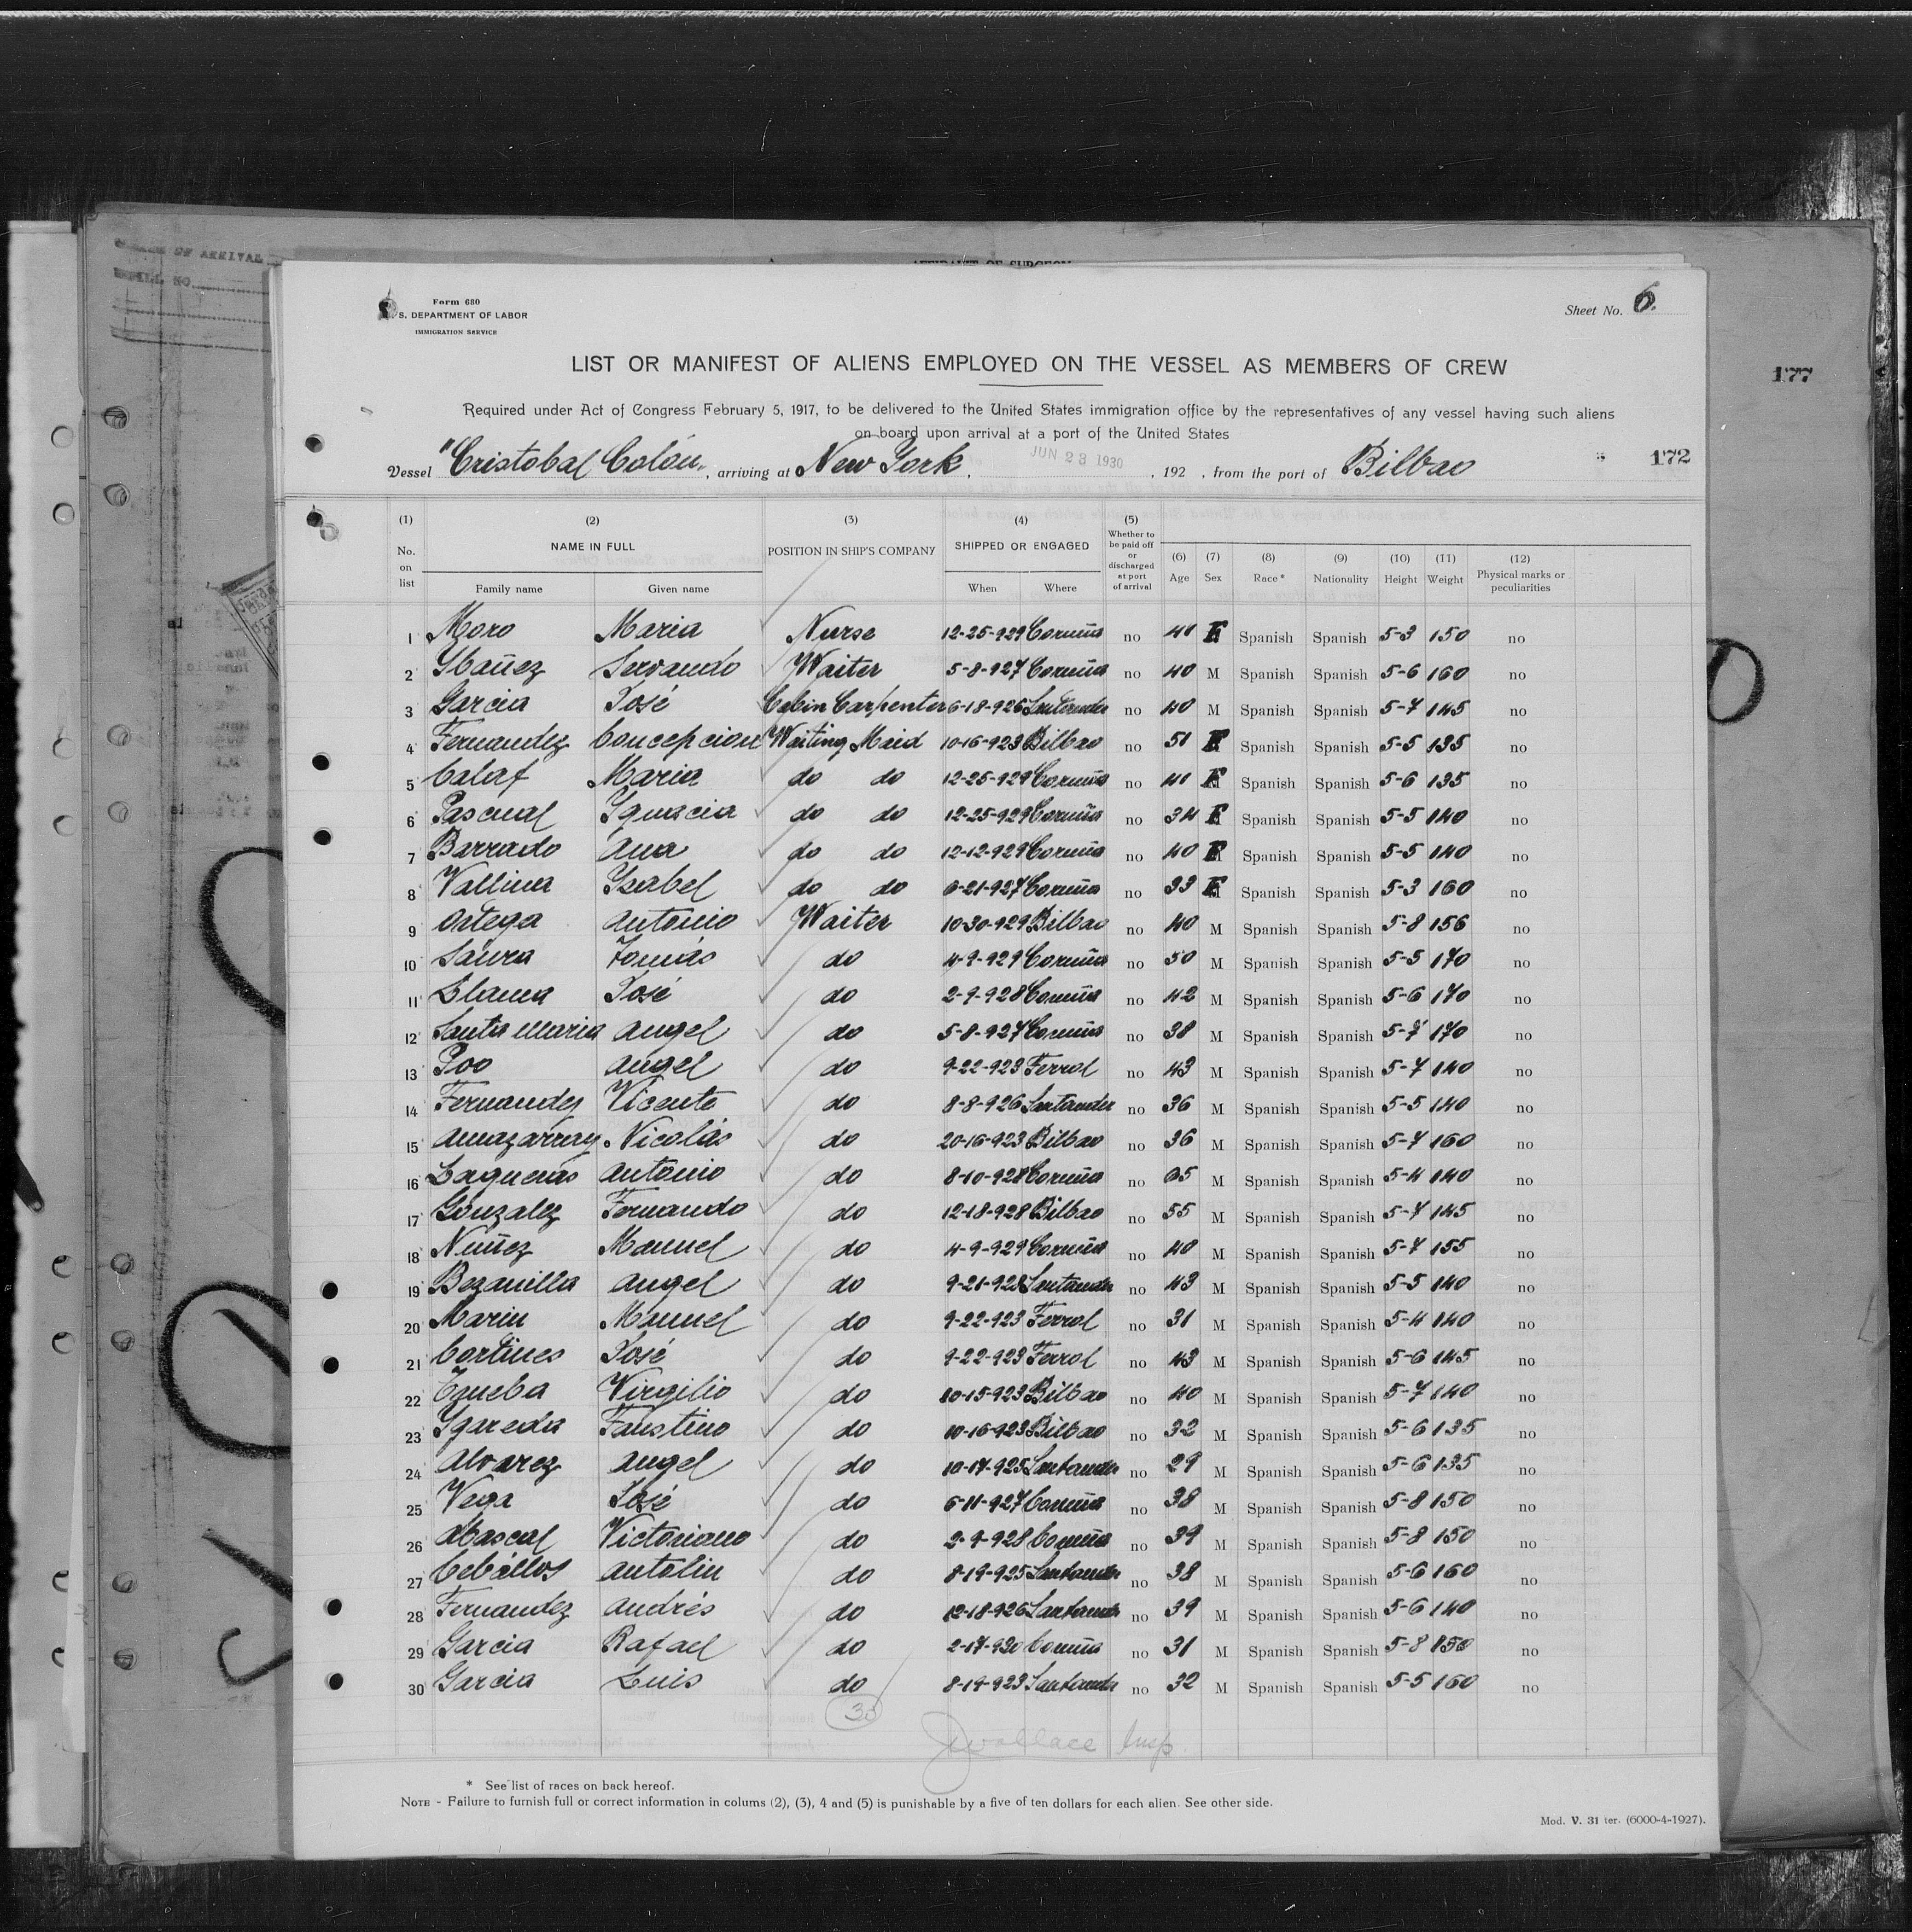 OF ARRIVAL
AFFIDAVIT OF SURGEON
177
Form 680
S. DEPARTMENT OF LABOR
IMMIGRATION SERVICE
Sheet No. 6.
LIST OR MANIFEST OF ALIENS EMPLOYED ON THE VESSEL AS MEMBERS OF CREW
Required under Act of Congress February 5, 1917, to be delivered to the United States immigration office by the representatives of any vessel having such aliens
on board upon arrival at a port of the United States
Vessel "Cristobal Colón", arriving at New York, JUN 23 1930, 192 , from the port of Bilbao 172
(1) No. on list (2) NAME IN FULL Family name Given name (3) POSITION IN SHIP'S COMPANY (4) SHIPPED OR ENGAGED When Where (5) Whether to be paid off or discharged at port of arrival (6) Age (7) Sex (8) Race * (9) Nationality (10) Height (11) Weight (12) Physical marks or peculiarities
1 Moro Maria Nurse 12-25-929 Coruña no 41 F Spanish Spanish 5-3 150 no
2 Ybañez Servando Waiter 5-8-927 Coruña no 40 M Spanish Spanish 5-6 160 no
3 Garcia José Cabin Carpenter 6-18-926 Santander no 40 M Spanish Spanish 5-7 145 no
4 Fernandez Concepcion Waiting Maid 10-16-923 Bilbao no 51 F Spanish Spanish 5-5 135 no
5 Calaf Maria do do 12-25-929 Coruña no 41 F Spanish Spanish 5-6 135 no
6 Pascual Ygnacia do do 12-25-929 Coruña no 34 F Spanish Spanish 5-5 140 no
7 Barrado Ana do do 12-12-929 Coruña no 40 F Spanish Spanish 5-5 140 no
8 Vallina Ysabel do do 6-21-927 Coruña no 33 F Spanish Spanish 5-3 160 no
9 Ortega Antonio Waiter 10-30-929 Bilbao no 40 M Spanish Spanish 5-8 156 no
10 Saura Tomás do 4-9-929 Coruña no 50 M Spanish Spanish 5-5 170 no
11 Llama José do 2-9-928 Coruña no 42 M Spanish Spanish 5-6 170 no
12 Santa Maria Angel do 5-8-927 Coruña no 38 M Spanish Spanish 5-7 170 no
13 Poo Angel do 9-22-923 Ferrol no 43 M Spanish Spanish 5-7 140 no
14 Fernandez Vicente do 8-8-926 Santander no 36 M Spanish Spanish 5-5 140 no
15 Amazarray Nicolás do 20-16-923 Bilbao no 36 M Spanish Spanish 5-7 160 no
16 Laqueras Antonio do 8-10-928 Coruña no 65 M Spanish Spanish 5-4 140 no
17 Gonzalez Fernando do 12-18-928 Bilbao no 55 M Spanish Spanish 5-7 145 no
18 Nuñez Manuel do 4-9-929 Coruña no 40 M Spanish Spanish 5-7 155 no
19 Bezanilla Angel do 9-21-928 Santander no 43 M Spanish Spanish 5-5 140 no
20 Marin Manuel do 9-22-923 Ferrol no 31 M Spanish Spanish 5-4 140 no
21 Cortines José do 9-22-923 Ferrol no 43 M Spanish Spanish 5-6 145 no
22 Virgilio do 10-15-923 Bilbao no 40 M Spanish Spanish 5-7 140 no
23 Ygareda Faustino do 10-16-923 Bilbao no 32 M Spanish Spanish 5-6 135 no
24 Alvarez Angel do 10-17-925 Santander no 29 M Spanish Spanish 5-6 135 no
25 Vega José do 6-11-927 Coruña no 38 M Spanish Spanish 5-8 150 no
26 Abascal Victoriano do 2-9-928 Coruña no 39 M Spanish Spanish 5-8 150 no
27 Ceballos Antolin do 8-19-925 Santander no 38 M Spanish Spanish 5-6 160 no
28 Fernandez Andrés do 12-18-926 Santander no 39 M Spanish Spanish 5-6 140 no
29 Garcia Rafael do 2-17-930 Coruña no 31 M Spanish Spanish 5-8 150 no
30 Garcia Luis do 8-19-923 Santander no 32 M Spanish Spanish 5-5 160 no
30
JWallace Insp.
* See list of races on back hereof.
NOTE - Failure to furnish full or correct information in colums (2), (3), 4 and (5) is punishable by a five of ten dollars for each alien. See other side.
Mod. V. 31 ter. (6000-4-1927).